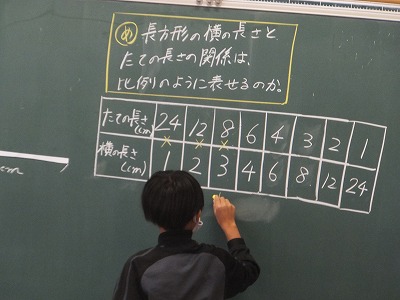 め 長方形の横の長さと
たての長さの関係は、
比例のように表せるのか。
たての長さ(cm) 24 12 8 6 4 3 2 1
横の長さ(cm) 1 2 3 4 6 8 12 24
× × ×
cm